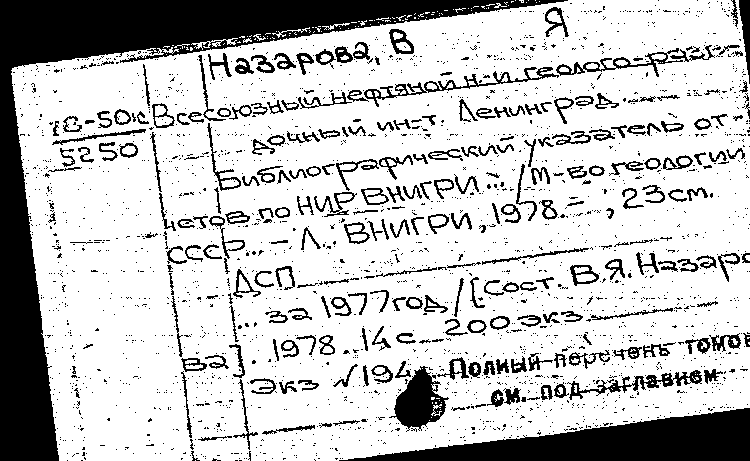 Назарова, В Я
78-50к Всесоюзный нефтяной н.-и. геолого-разве-
5250
дочный ин-т. Ленинград.
Библиографический указатель от-
четов по НИР ВНИГРИ... / М-во геологии
СССР... – Л.: ВНИГРИ, 1978. – ; 23 см.
ДСП
... за 1977 год / [Сост. В.Я. Назаро-
ва]. 1978. 14 с. 200 экз
Экз √194
Полный перечень томов
см. под заглавием